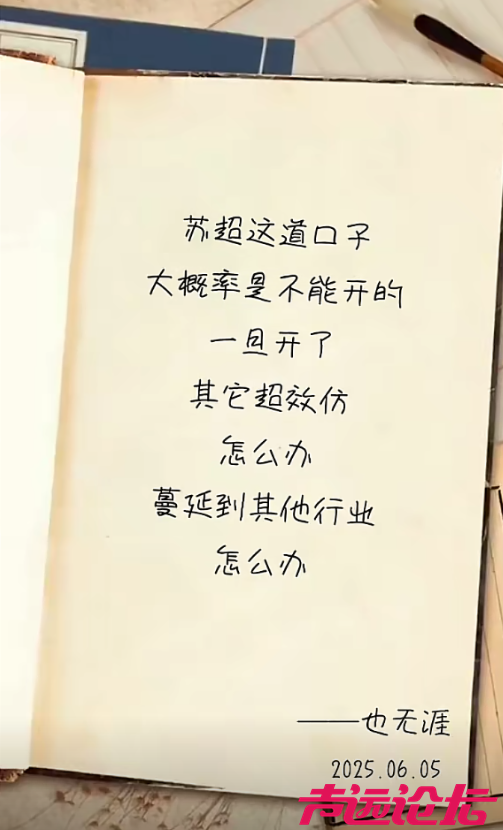 苏超这道口子
大概率是不能开的
一旦开了
其它超效仿
怎么办
蔓延到其他行业
怎么办
——也无涯
2025.06.05
声远论坛